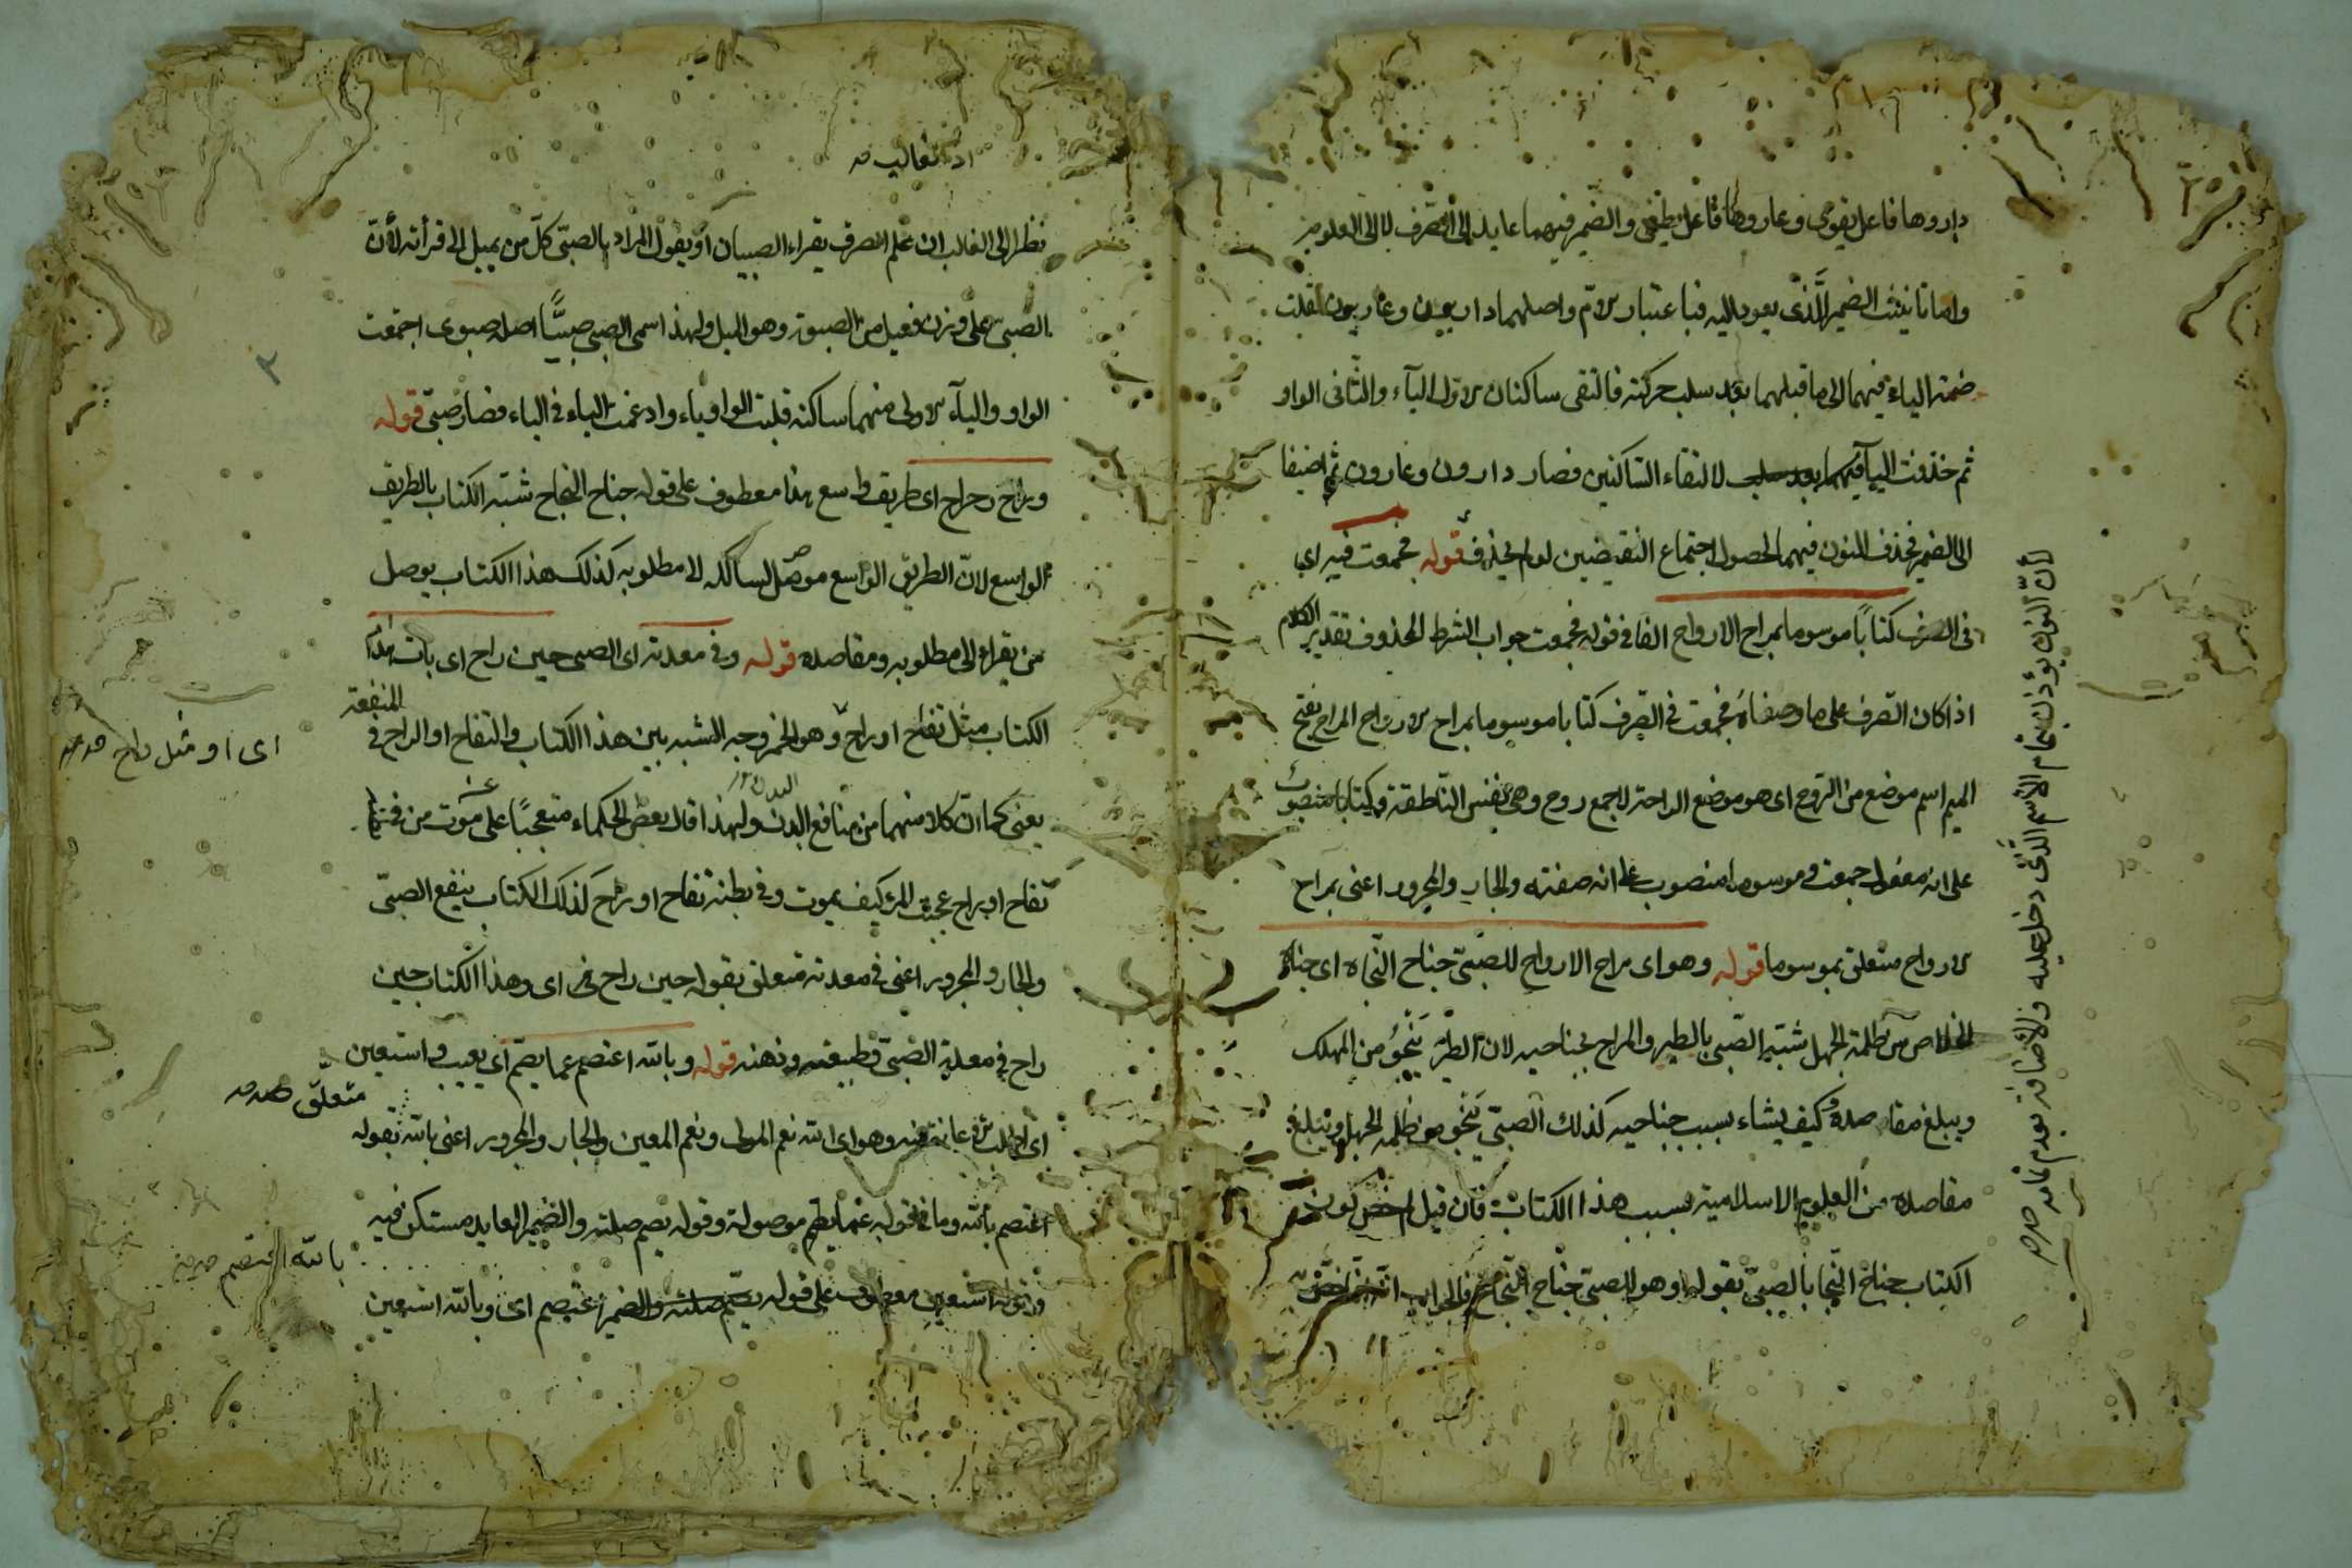 داروها فاعل يقوى وعاروها فاعل يطغى والضمير فيهما عايد الى الصرف لا الى العلوم
واما تانيث الضمير الَّذى يعود اليه فباعتبار الام واصلهما داريون وعاريون نقلت
ضمة الياء فيهما الى ما قبلهما بعد سلب حركته فالتقى ساكنان الاول الياء والثّانى الواو
ثم حذفت الياء فيهما لالتقاء الساكنين فصار دارون وعارون ثم اضيفا
الى الضمير فحذف النون فيهما لحصول اجتماع النقيضين لو لم يحذف قوله فجمعت فيه اى
فى الصرف كتاباً موسوما بمراح الارواح الفا فى قوله فجمعت جواب الشرط المحذوف تقدير الكلام
اذا كان الصرف على ما وصفناه فجمعت فى الصرف كتابا موسوما بمراح الارواح المراح بفتح
الميم اسم موضع من الرّوح اى هو موضع الراحة لا جمع روح وهى نفس النّاطقة وكتابا منصوب
على انه مفعول جمعت وموسوما منصوب على انه صفته والجار والمجرور اعنى بمراح
الارواح متعلق بموسوما قوله وهو اى مراح الارواح للصّبىّ جناح النّجاه اى جناح
الخلاص من ظلمة الجهل شبّه الصّبى بالطير والمراح بجناحيه لان الطير يَنْجُو من المهلك
ويبلغ مقاصده كيف يشاء بسبب جناحيه كذلك الصبىّ يَنجو من ظلمه الجهل ويبلغ
مقاصده من العلوم الاسلامية بسبب هذا الكتاب فان قيل لم خص كون
الكتاب جناح النّجا بالصبىّ بقوله وهو للصبىّ جناح النّجاح فالجواب انّه انما خصّ
لأنّ النون يؤذن بتمام الاسم الَّذى دخل عليه والاضافة بعدم تمامه
نظرا الى الغالب ان علم الصرف يقراء الصبيان او يقول المراد بالصبىّ كلّ من يميل الى قرأته لأنّ
الصبى على وزن فعيل من الصبوة وهو الميل ولهذا اسمى الصبى صبيًّا اصله صبوى اجتمعت
الواو والياء الاولى منهما ساكنة قلبت الواو ياء وادغمت الياء فى الياء فصار صبىّ قوله
وراح رحراح اى طريق واسع هذا معطوف على قوله جناح النجاح شبّه الكتاب بالطريق
الواسع لانّ الطريق الواسع موصل لسالكه لا مطلوبه كذلك هذا الكتاب يوصل
من يقراء الى مطلوبه ومقاصده قوله وفى معدته اى الصبى حين راح اى بات هذا
الكتاب مثل تفاح او راح وهو الخمر وجه الشبه بين هذا الكتاب والتفاح او الراح فى المنفعة
يعنى كما انّ كلا منهما من منافع البدن ولهذا قال بعض الحكماء متعجبًا على موت من فى
تفاح او براح عجبت للمرء كيف يموت وفى بطنه تفاح او راح كذلك الكتاب ينفع الصبىّ
والجار والمجرور اعنى فى معدته متعلق بقوله حين راح اى وهذا الكتاب حين
راح فى معدة الصّبىّ وطبيعته وذهنه قوله وبالله اعتصم عما يصم اى يعيب واستعين
اى اطلب الاعانة منه وهو اى الله نعم المولى ونعم المعين والجار والمجرور اعنى بالله بقوله
اعتصم بالله وما فى قوله عمّا يصم موصولة وقوله يصم صلته والضمير العايد مستكن فيه
وقوله استعين معطوف على قوله اعتصم اى وبالله استعين
اى او مثل راح
متعلّق
بالله اعتصم